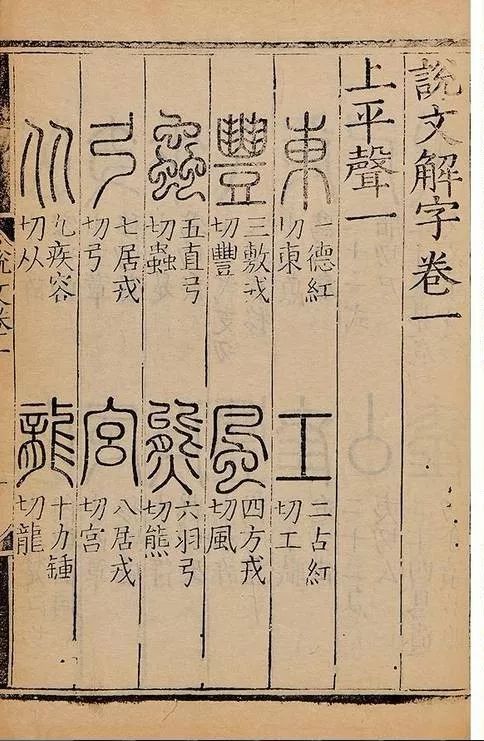 說文解字卷一
上平聲一
東
一德紅
切東
工
二占紅
切工
豐
三敷戎
切豐
風
四方戎
切風
蟲
五直弓
切蟲
熊
六羽弓
切熊
弓
七居戎
切弓
宮
八居戎
切宮
从
九疾容
切从
龍
十力鍾
切龍